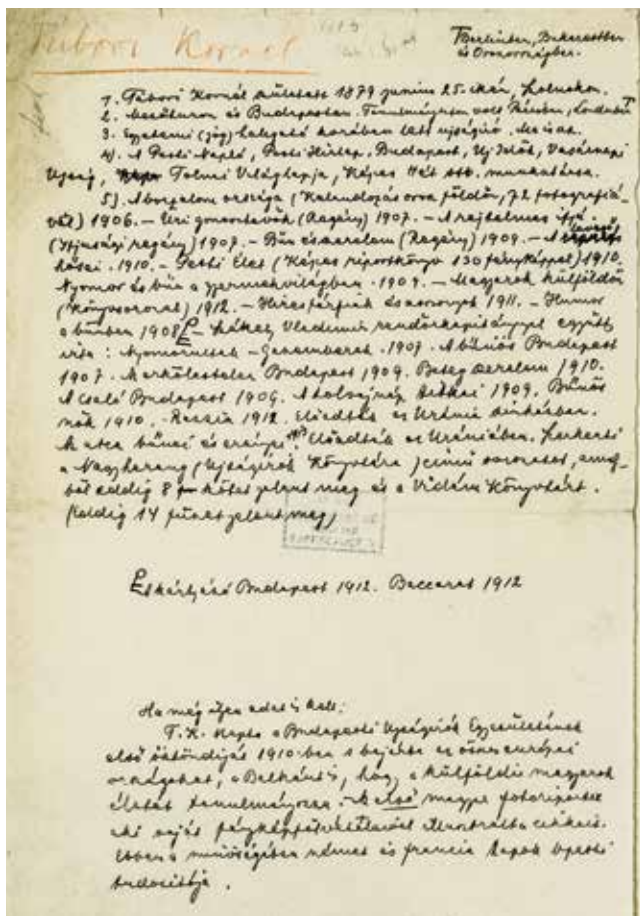 Tábori Kornél
Berlinben, Bukarestben
és Oroszországban.
1. Tábori Kornél született 1879 junius 25-ikén, Szolnokon.
2. Mezőturon és Budapesten. Tanulmányúton volt Bécsben, Londonban
3. Egyetemi (jog) hallgató korában lett ujságiró. Ma is az.
4). A Pesti Napló, Pesti Hirlap, Budapest, Uj Idők, Vasárnapi
Ujság, Tolnai Világlapja, Képes Hét stb. munkatársa.
5). A borzalom országa (Kalandozás orosz földön, 72 fotografiá-
val) 1906. – Uri gonosztevők (Regény) 1907. – A rejtelmes
(Ifjusági regény) 1907. – Bün és szerelem (Regény) 1909. – A
hősei. 1910. – Pesti Élet (Képes riportkönyv 130 fényképpel) 1910.
Nyomor és bün a gyermekvilágban. 1909. – Magyarok külföldön
(Könyvsorozat) 1912. – Hires férfiak és asszonyok 1911. – Humor
a bünben 1908. – Székely Vladimir rendőrkapitánnyal együtt
irta: Nyomorultak – Gazemberek. 1907. A bünös Budapest
1907. Az erkölcstelen Budapest 1909. Beteg szerelem 1910.
A Csaló Budapest 1909. A tolvajnép titkai 1909. Bünös
nők 1910. Razzia 1912. Előadták az Uránia szinházban.
Az utca bünei és erényei. Előadták az Urániában. Szerkeszti
a Nagyharang (Ujságirók Könyvtára) cimü sorozatot, amely-
ből eddig 8 kötet jelent meg és a Vidám Könyvtárt.
(Eddig 14 füzet jelent meg)
És kártyázó Budapest 1912. Baccarat 1912
Ha még ilyen adat is kell:
T. K. kapta a Budapesti Ujságirók Egyesületének
első ösztöndiját 1910-ben s bejárta az összes európai
országokat, a Balkánt is, hogy a külföldi magyarok
életét tanulmányozza. Az első magyar fotoriporter
aki saját fényképfelvételeivel illusztrálta cikkeit.
Ebben a minőségében német és francia lapok
tudósitója.